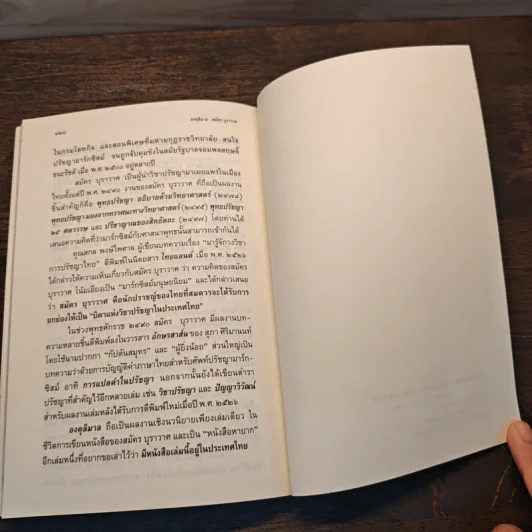 ๑๒๘
องคุลิมาล : สมัคร บุราวาศ
ในกรมโลหกิจ และสอนพิเศษที่มหามกุฏราชวิทยาลัย สนใจ
ปรัชญามาร์กซิสม์ จนถูกจับคุมขังในสมัยรัฐบาลจอมพลสฤษดิ์
ธนะรัชต์ เมื่อ พ.ศ. ๒๕๐๐ อยู่หลายปี
สมัคร บุราวาศ เป็นผู้นำวิชาปรัชญามาเผยแพร่ในเมือง
ไทยตั้งแต่ปี พ.ศ. ๒๔๙๐ งานของสมัคร บุราวาศ ที่ถือเป็นผลงาน
ชิ้นสำคัญก็คือ พุทธปรัชญา อธิบายด้วยวิทยาศาสตร์ (๒๔๗๘)
พุทธปรัชญา มองจากทรรศนะทางวิทยาศาสตร์ (๒๔๙๕) พุทธปรัชญา
๒๕ ศตวรรษ และ ปรีชาญาณของสิทธัตถะ (๒๔๙๗) โดยท่านได้
เสนอความคิดที่ว่ามาร์กซิสม์กับศาสนาพุทธนั้นสามารถเข้ากันได้
คุณสกล พงษ์ไพศาล ผู้เขียนบทความเรื่อง “มารู้จักวงวิชา
การปรัชญาไทย” ตีพิมพ์ในนิตยสาร ไทยแลนด์ เมื่อ พ.ศ. ๒๕๒๖
ได้กล่าวให้ความเห็นเกี่ยวกับสมัคร บุราวาศ ว่า ความคิดของสมัคร
บุราวาศ โน้มเอียงเป็น “มาร์กซิสม์มนุษยนิยม” และได้กล่าวเสนอ
ว่า สมัคร บุราวาศ คือนักปราชญ์ของไทยที่สมควรจะได้รับการ
ยกย่องให้เป็น “บิดาแห่งวิชาปรัชญาในประเทศไทย”
ในช่วงพุทธศักราช ๒๔๙๐ สมัคร บุราวาศ มีผลงานบท-
ความหลายชิ้นตีพิมพ์ลงในวารสาร อักษรสาส์น ของ สุภา ศิริมานนท์
โดยใช้นามปากกา “กัปตันสมุทร” และ “ผู้ยิ่งน้อย” ส่วนใหญ่เป็น
บทความว่าด้วยการบัญญัติคำภาษาไทยสำหรับศัพท์ปรัชญามาร์ก-
ซิสม์ อาทิ การแปลคำในปรัชญา นอกจากนั้นยังได้เขียนตำรา
ปรัชญาที่สำคัญไว้อีกหลายเล่ม เช่น วิชาปรัชญา และ ปัญญาวิวัฒน์
สำหรับผลงานเล่มหลังได้รับการตีพิมพ์ใหม่เมื่อปี พ.ศ. ๒๕๒๖
องคุลิมาล ถือเป็นผลงานเชิงนวนิยายเพียงเล่มเดียว ใน
ชีวิตการเขียนหนังสือของสมัคร บุราวาศ และเป็น “หนังสือหายาก”
อีกเล่มหนึ่งที่อยากขอเล่าไว้ว่า มีหนังสือเล่มนี้อยู่ในประเทศไทย